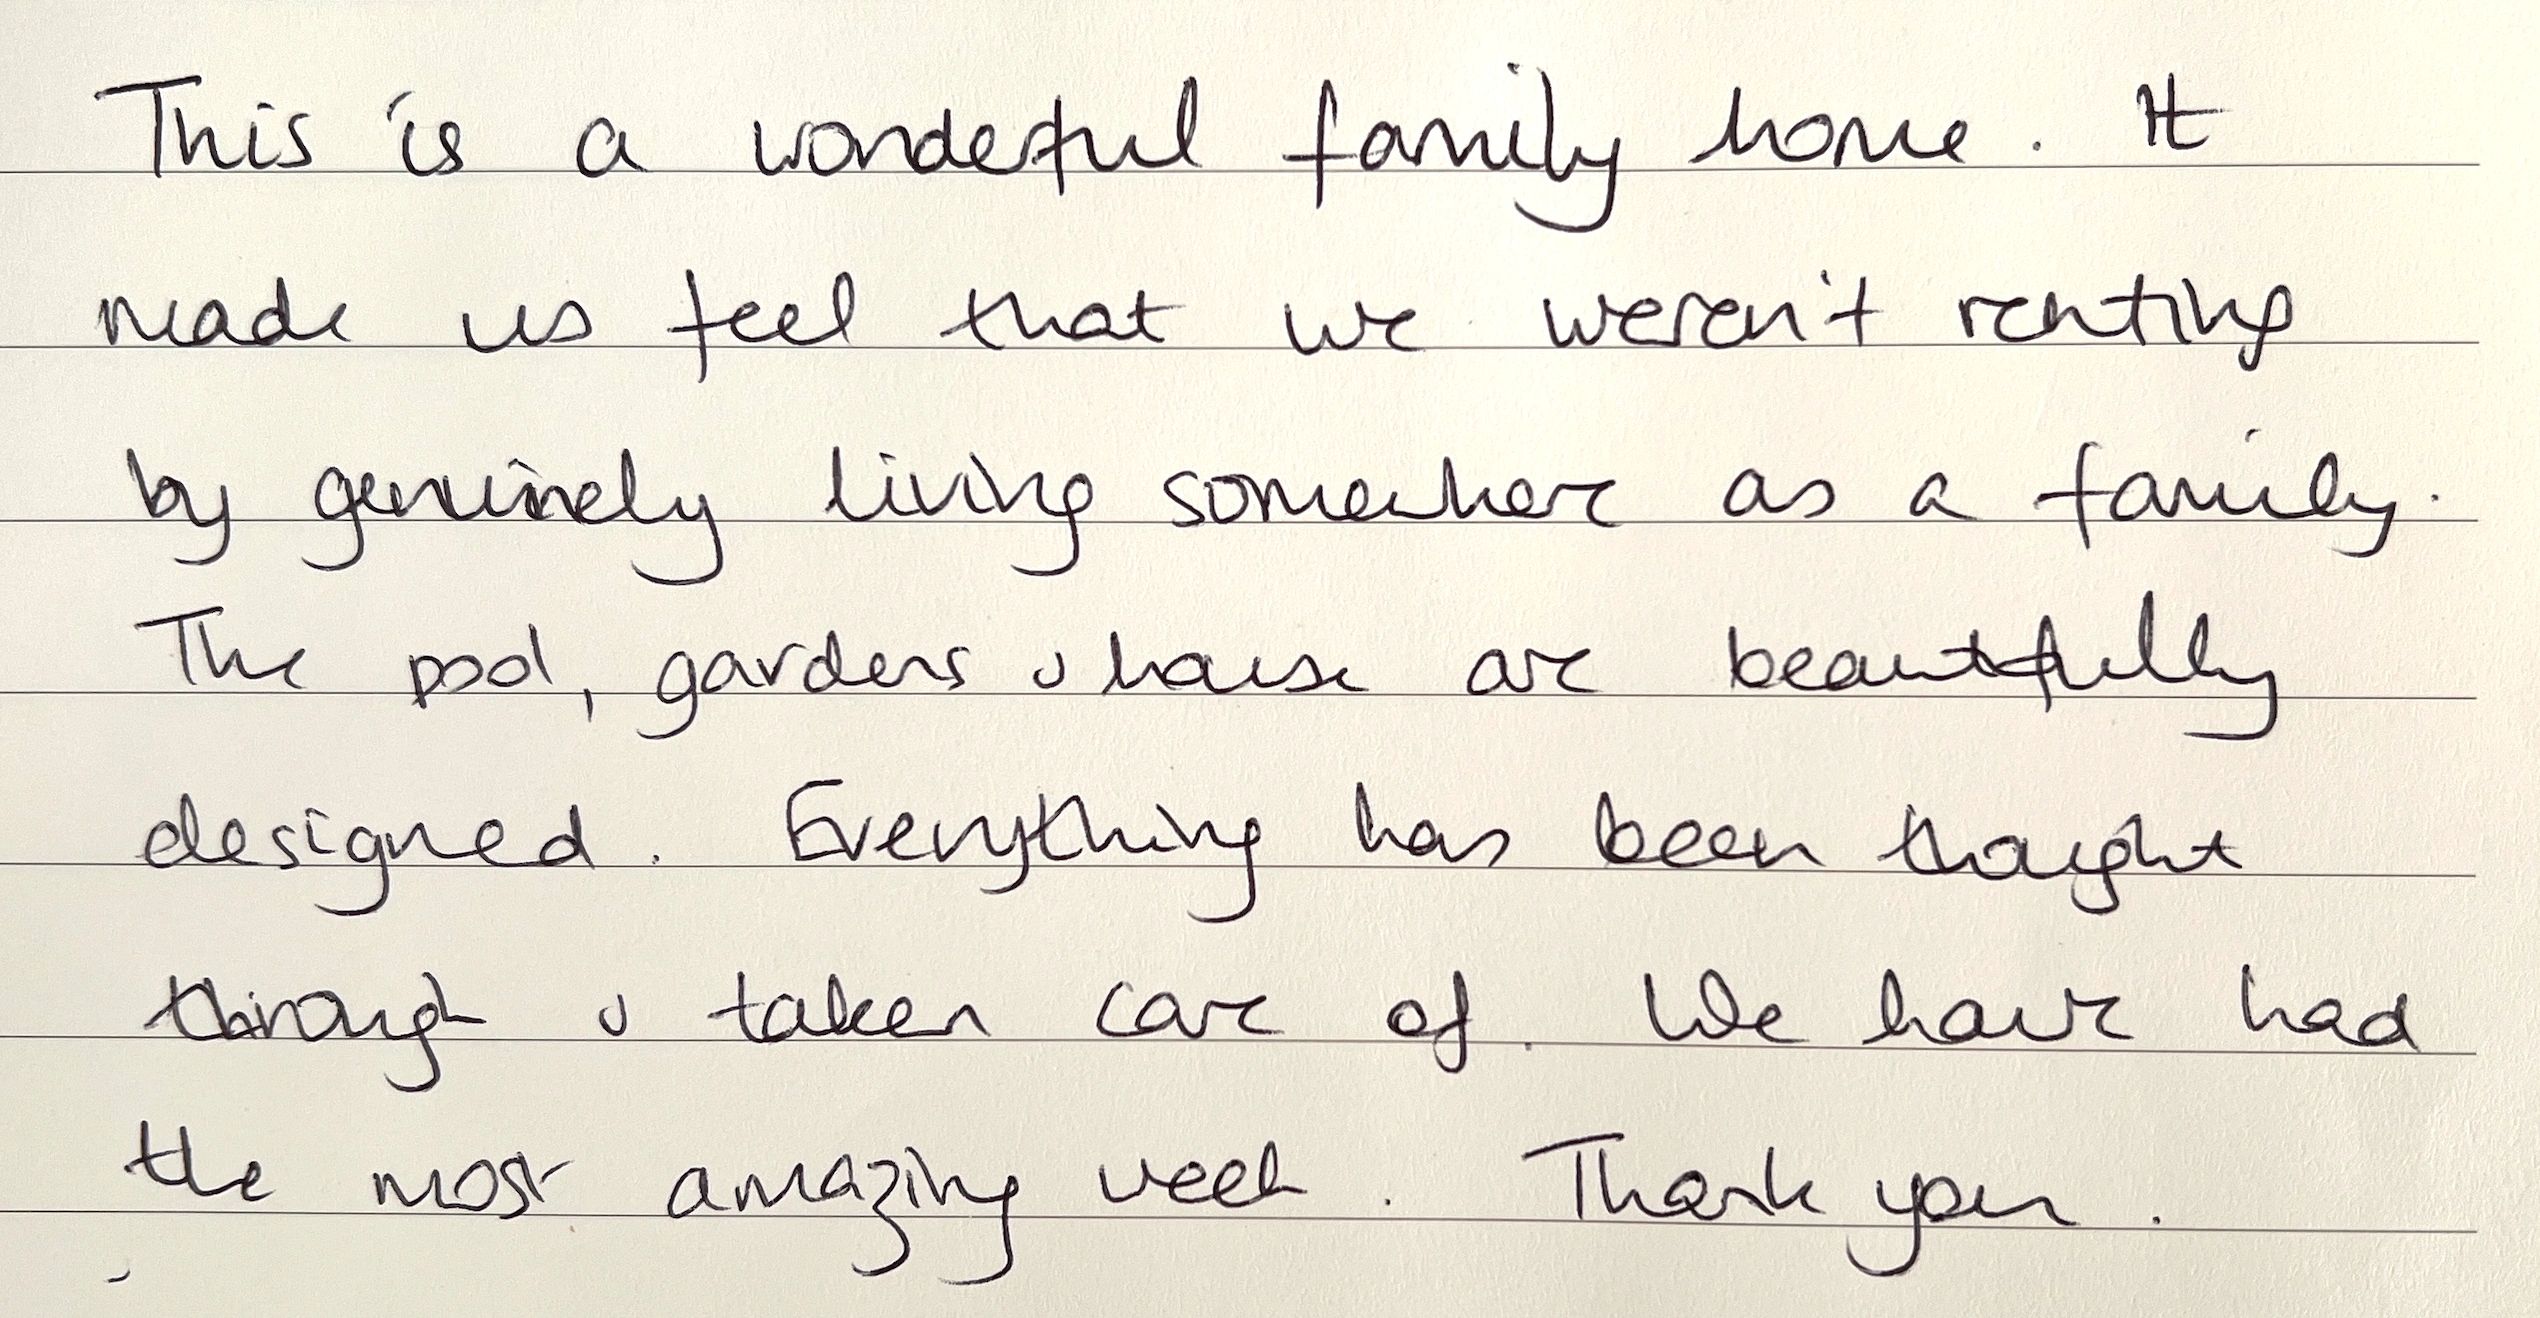 This is a wonderful family home. It
made us feel that we weren't renting
by genuinely living somewhere as a family.
The pool, gardens & house are beautfully
designed. Everything has been thought
through & taken care of. We have had
the most amazing week. Thank you.